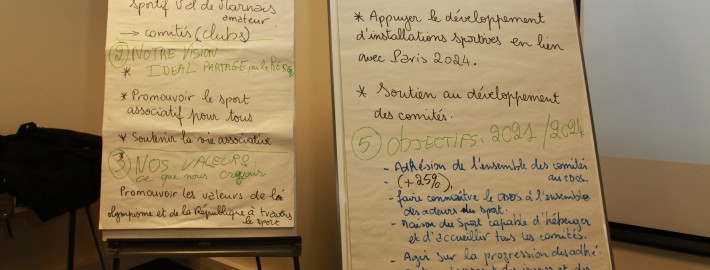 sportif Val de Marnais
amateur
→ comités (clubs)
② NOTRE VISION
* IDEAL PARTAGE par le RESEAU
* Promouvoir le sport
associatif pour tous
* Soutenir la vie associative
③ NOS VALEURS :
ce que nous croyons
Promouvoir les valeurs de l'
olympisme et de la République à travers
le sport
* Appuyer le développement
d'installations sportives en lien
avec Paris 2024.
* Soutien au développement
des comités.
⑤ OBJECTIFS : 2021/2024
- Adhésion de l'ensemble des comités
au CDOS.
- (+25%),
- faire connaître le CDOS à l'ensemble
des acteurs du sport.
- Maison du Sport capable d'héberger
et d'accueillir tous les comités.
- Agir sur la progression des adhé.